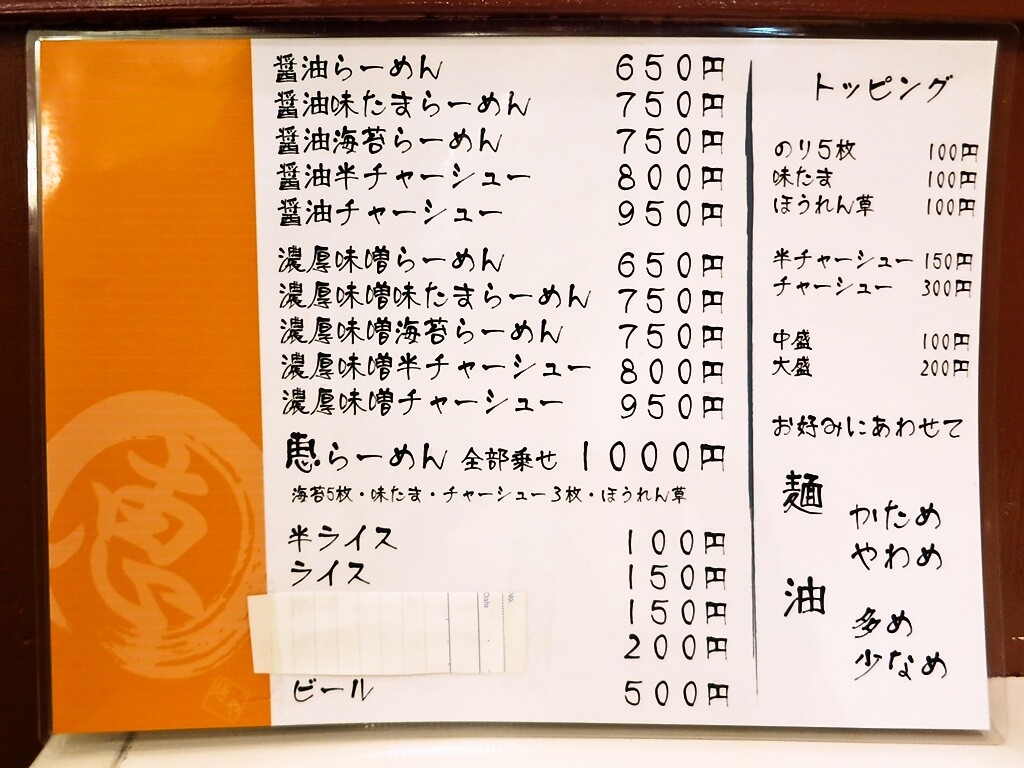 醤油らーめん 650円
醤油味たまらーめん 750円
醤油海苔らーめん 750円
醤油半チャーシュー 800円
醤油チャーシュー 950円
濃厚味噌らーめん 650円
濃厚味噌味たまらーめん 750円
濃厚味噌海苔らーめん 750円
濃厚味噌半チャーシュー 800円
濃厚味噌チャーシュー 950円
恵らーめん 全部乗せ 1000円
海苔5枚・味たま・チャーシュー3枚・ほうれん草
半ライス 100円
ライス 150円
150円
200円
ビール 500円
No.
Date
トッピング
のり5枚 100円
味たま 100円
ほうれん草 100円
半チャーシュー 150円
チャーシュー 300円
中盛 100円
大盛 200円
お好みにあわせて
麺
かため
やわめ
油
多め
少なめ